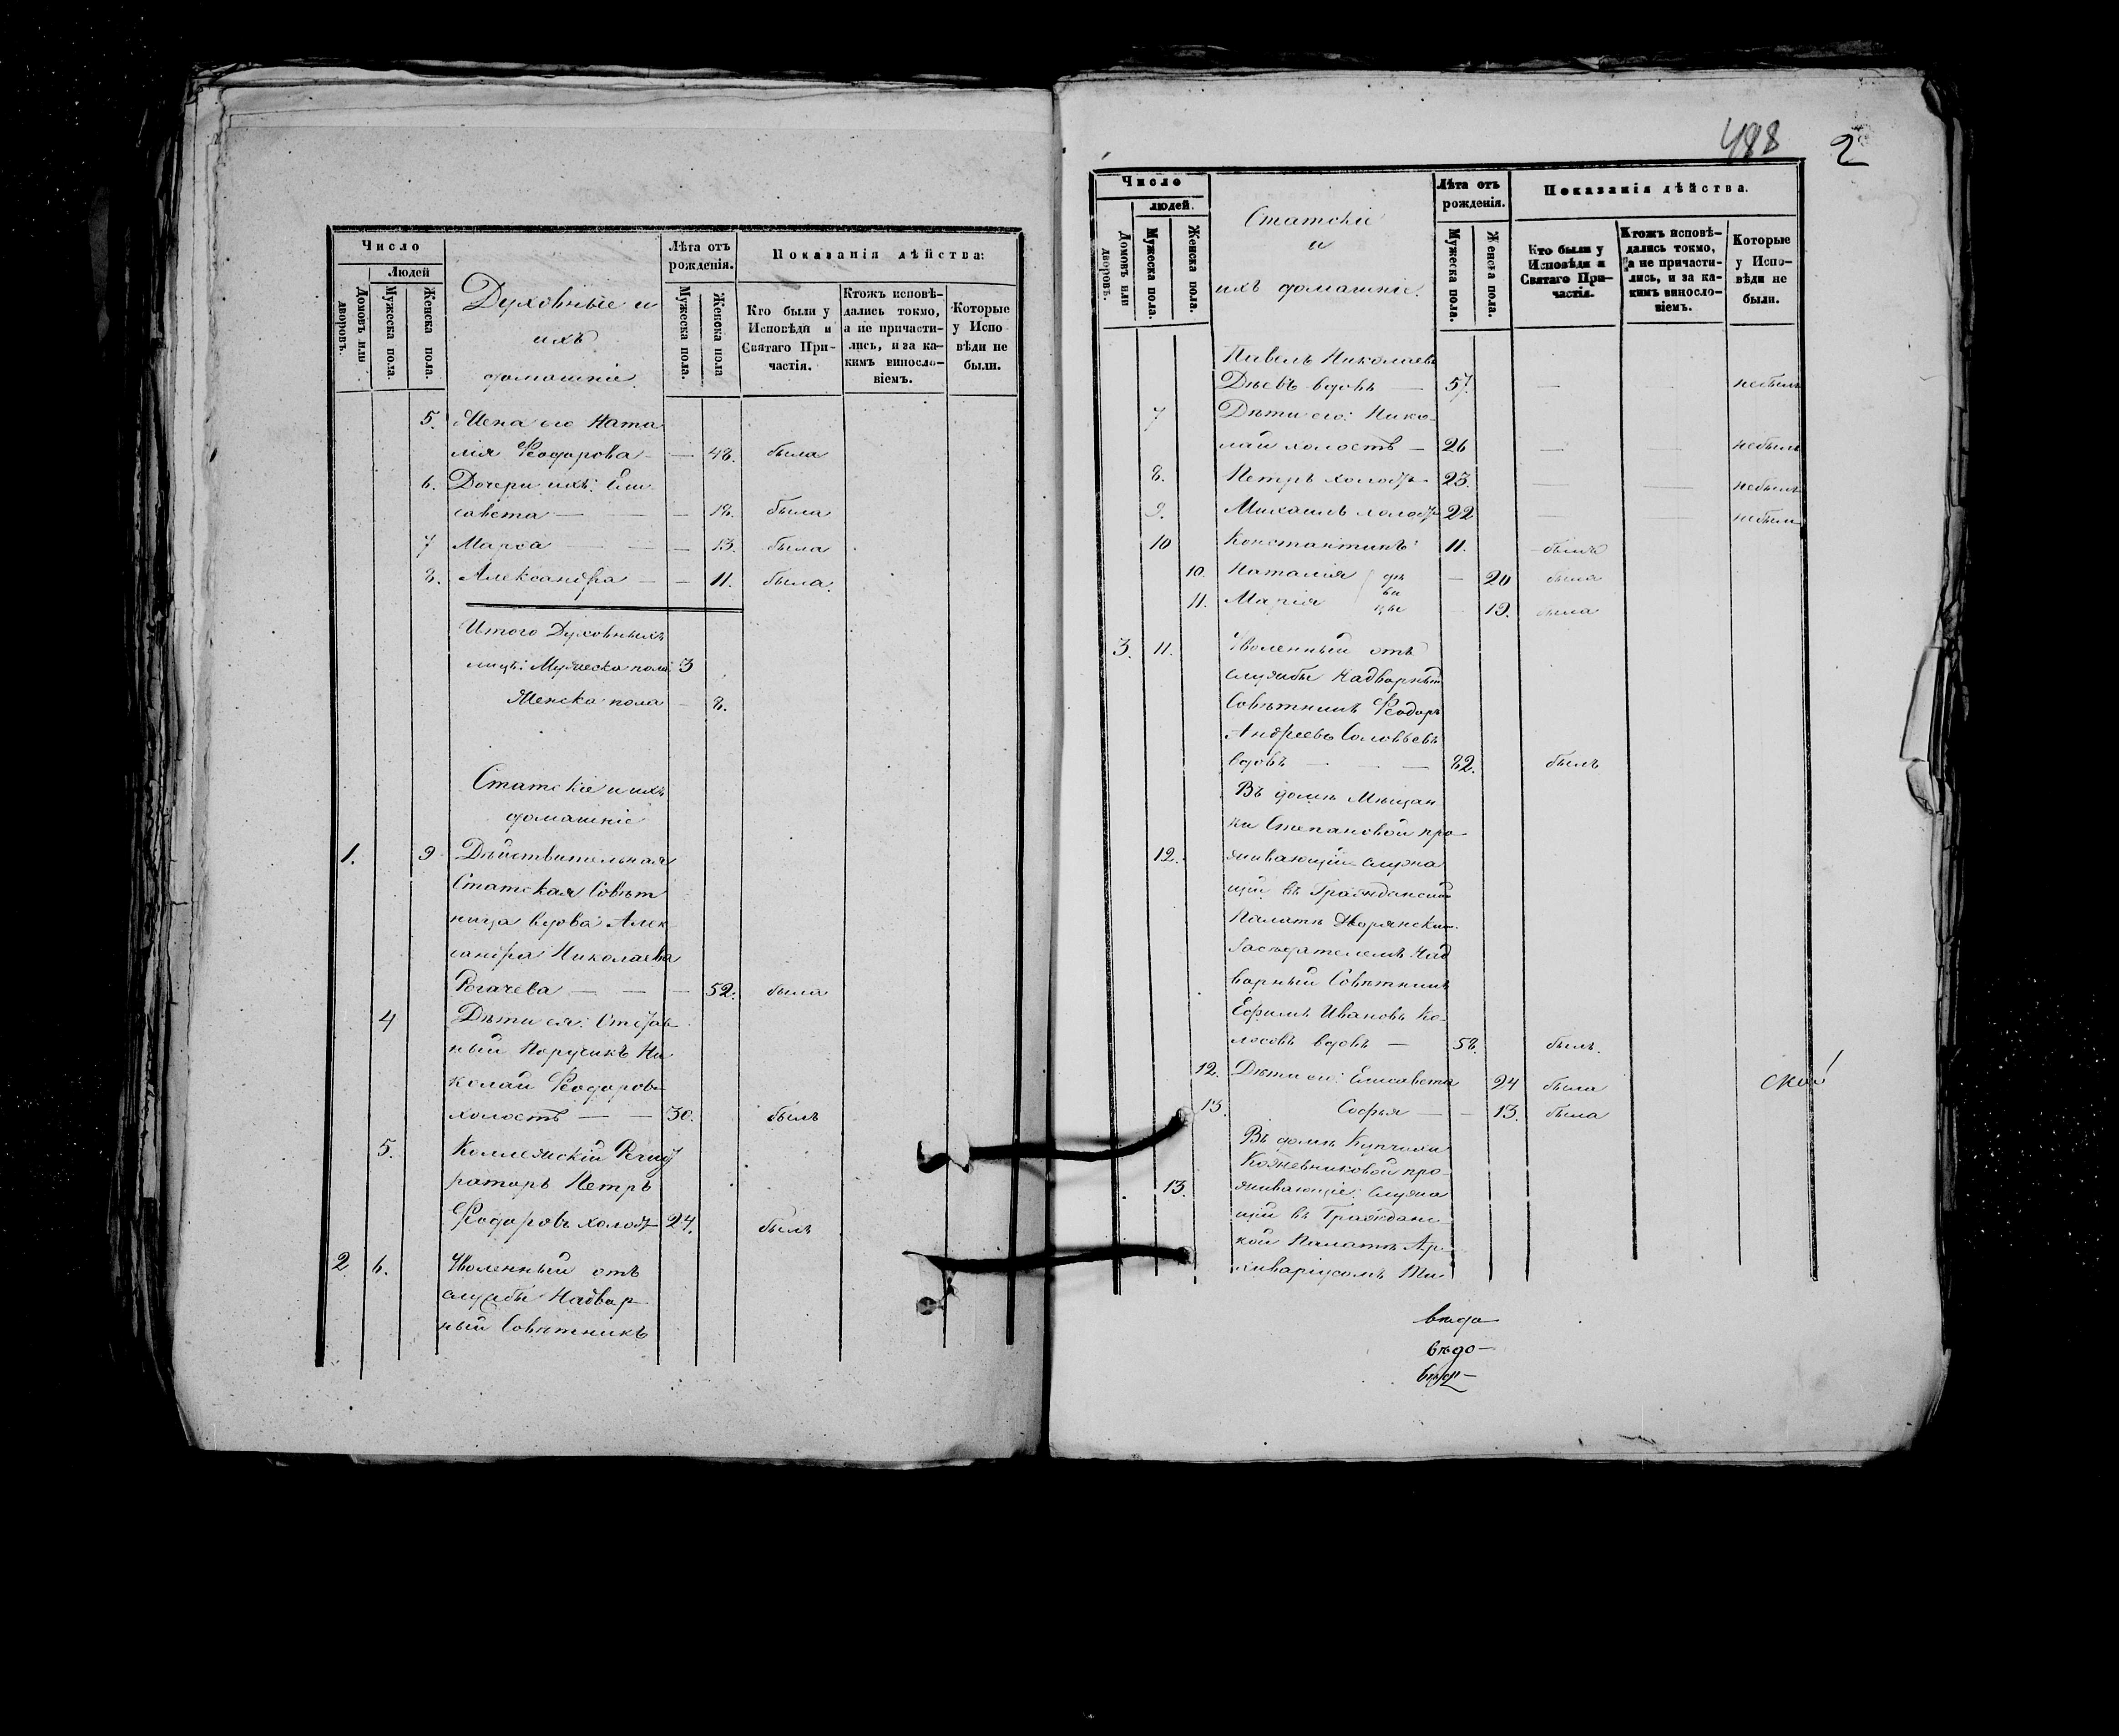 Число
Людей
Домовъ или дворовъ.
Мужеска пола.
Женска пола.
Духовные и
ихъ
домашніе.
Лѣта отъ
рожденія.
Мужеска пола.
Женска пола
Показанія дѣйства:
Кто были у
Исповѣди и
Святаго При-
частія.
Ктожъ исповѣ-
дались токмо,
а не причасти-
лись, и за ка-
кимъ виносло-
віемъ.
Которые
у Испо
вѣди не
были.
5. Жена его Ната
лія Ѳеодорова — — 48. была
6. Дочери ихъ: Ели
савета — — — 18. была
7 Марѳа — — — 13. была
8. Александра — — 11. была.
Итого Духовныхъ
лицъ: Мужеска пола 3
Женска пола — 8.
Статскіе и ихъ
домашніе
1. 9 Дѣйствительная
Статская Совѣт
ница вдова Алек
сандра Николаева
Рогачева — — — 52. была
4 Дѣти ея: Отстав
ный Поручикъ Ни
колай Ѳеодоровъ
холостъ — — 30. былъ
5. Коллежскій Регист
раторъ Петръ
Ѳеодоровъ холостъ 24. былъ
2 6. Уволенный отъ
службы Надвор
ный Совѣтникъ
488 2
Число
людей.
Домовъ или дворовъ.
Мужеска пола.
Женска пола.
Статскіе
и
ихъ домашніе.
Лѣта отъ
рожденія.
Мужеска пола.
Женска пола.
Показанія дѣйства.
Кто были у
Исповѣди и
Святаго При-
частія.
Ктожъ исповѣ-
дались токмо,
а не причасти-
лись, и за ка-
кимъ виносло-
віемъ.
Которые
у Испо-
вѣди не
были.
Павелъ Николаевъ
Дѣевъ вдовъ — 57. — — небылъ
7 Дѣти его: Нико-
лай холостъ — 26 — — небылъ
8. Петръ холостъ 23. — — небылъ
9. Михаилъ холостъ 22 — — небылъ
10 Константинъ 11. былъ
10. Наталія дѣ — 20 была
ви
11. Марія цы — 19. была
3. 11. Уволенный отъ
службы Надворный
Совѣтникъ Ѳеодоръ
Андреевъ Соловьевъ
вдовъ — — — 82. былъ
Въ домѣ Мѣщан
ки Степановой про-
12. живающій служа
щій въ Гражданской
Палатѣ Дворянскимъ
Засѣдателемъ Над
ворный Совѣтникъ
Ефимъ Ивановъ Ко-
лосовъ вдовъ — 58. былъ.
12. Дѣти его: Елисавета 24 была
13. Софья — — 13. была
Въ домѣ Купчихи
Кожевниковой про-
13. живающіе: служа
щій въ Граждан-
ской Палатѣ Ар-
хиваріусомъ Ти
вѣдо
вѣдо—